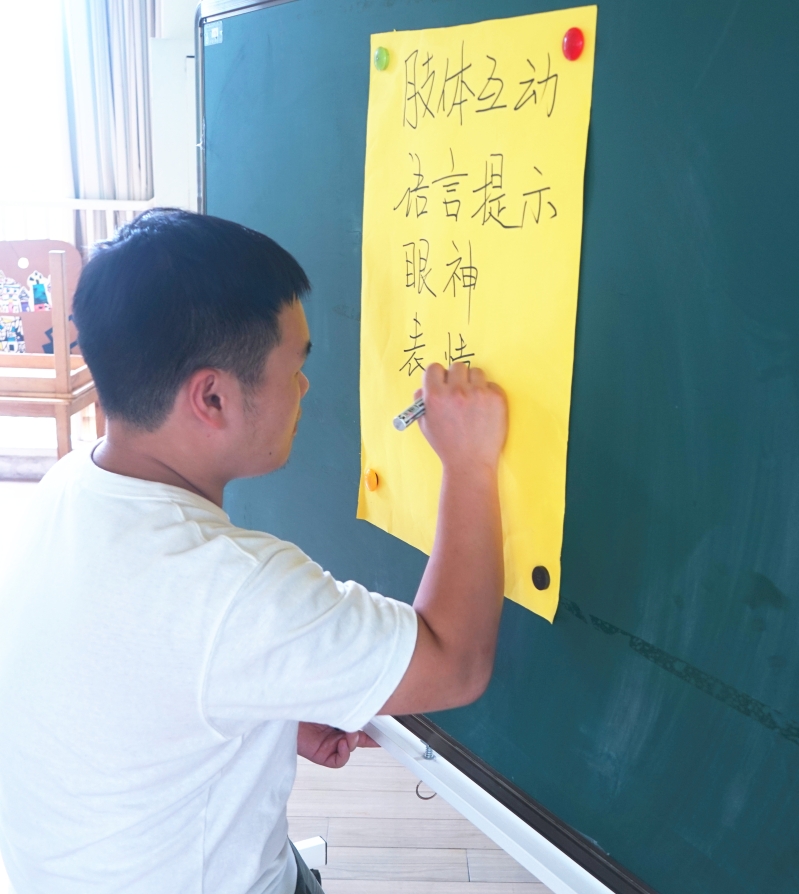 肢体互动
语言提示
眼神
表情